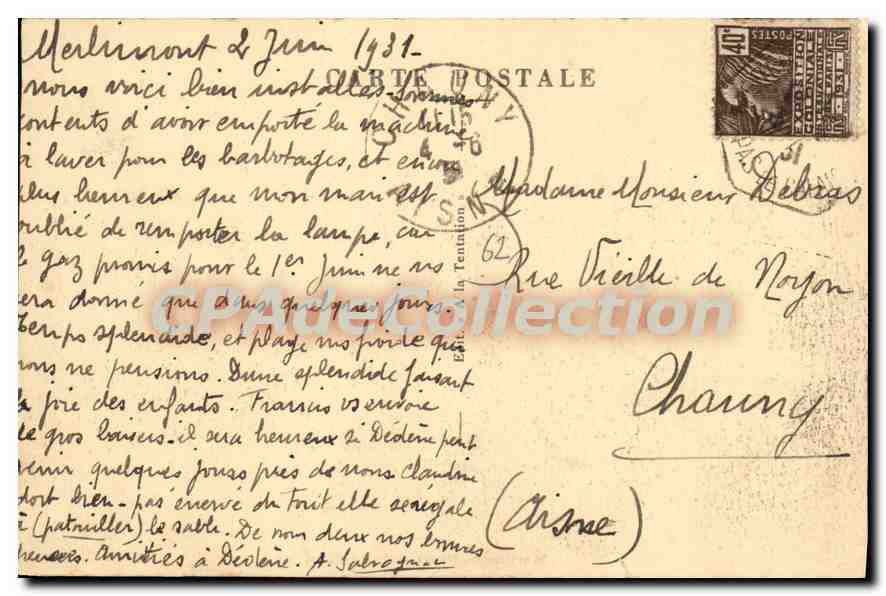 Merlimont 2 Juin 1931-
CARTE POSTALE
nous voici bien installés - sommes
contents d'avoir emporté la machine
à laver pour les barbotages, et encore
plus heureux que mon mari est
oublié de remporter la lampe, car
le gaz promis pour le 1er Juin ne ns
sera donné que dans quelques jours.
temps splendide, et plage ns froide que
nous ne pensions. Dune splendide faisant
la joie des enfants. Francis vs envoie
de gros baisers - il sera heureux si Dédène peut
venir quelques jours près de nous Claudine
dort bien - pas énervé du tout elle se régale
à (patouiller) le sable. De nous deux nos bonnes
heures. Amitiés à Dédène. A.
Edit. "A la Tentation"
62
CHAUNY
AISNE
40c
POSTES
EXPOSITION
COLONIALE
INTERNATIONALE
PARIS 1931
31
PAS
Madame Monsieur Debras
Rue Vieille de Noyon
Chauny
(Aisne)
CPAdeCollection.com